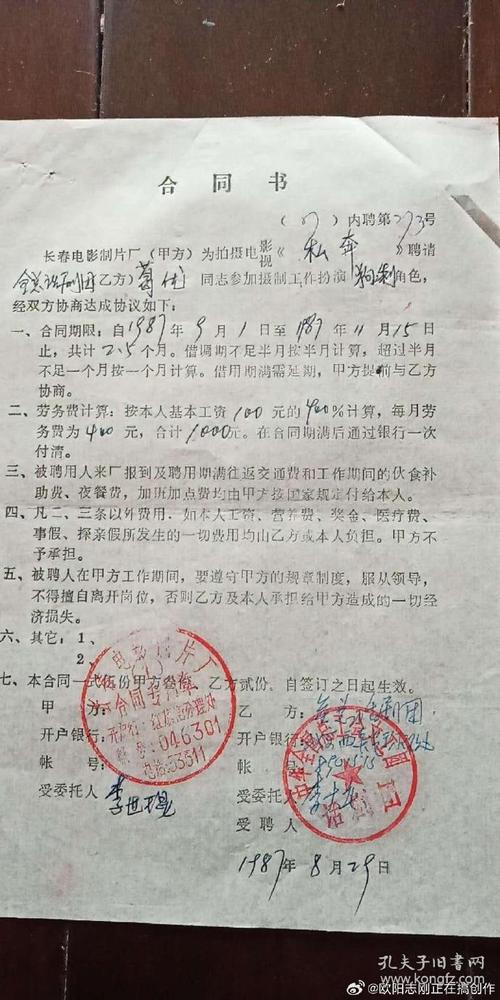 合同书
(87)内聘第273号
长春电影制片厂(甲方)为拍摄电影视《私奔》聘请
全总话剧团(乙方)葛优同志参加摄制工作扮演狗剩角色,
经双方协商达成协议如下:
一、合同期限:自1987年9月1日至1987年11月15日
止,共计2.5个月。借调期不足半月按半月计算,超过半月
不足一个月按一个月计算。借用期满需延期,甲方提前与乙方
协商。
二、劳务费计算:按本人基本工资100元的400%计算,每月劳
务费为400元,合计1000元。在合同期满后通过银行一次
付清。
三、被聘用人来厂报到及聘用期满往返交通费和工作期间的伙食补
助费、夜餐费,加班加点费均由甲方按国家规定付给本人。
四、凡二、三条以外费用.如本人工资、营养费、奖金、医疗费、
事假、探亲假所发生的一切费用均由乙方或本人负担。甲方不
予承担。
五、被聘人在甲方工作期间,要遵守甲方的规章制度,服从领导,
不得擅自离开岗位,否则乙方及本人承担给甲方造成的一切经
济损失。
六、其它:1、
2、
七、本合同一式伍份甲方叁份,乙方贰份,自签订之日起生效。
甲方:
开户银行:
帐号:
受委托人
长春电影制片厂
合同专用章
046301
电话:53511
乙方:全总话剧团
开户银行:
帐号:
受委托人
受聘人
话剧团
1987年8月29日
孔夫子旧书网
kongfz.com
@欧阳志刚正在搞创作